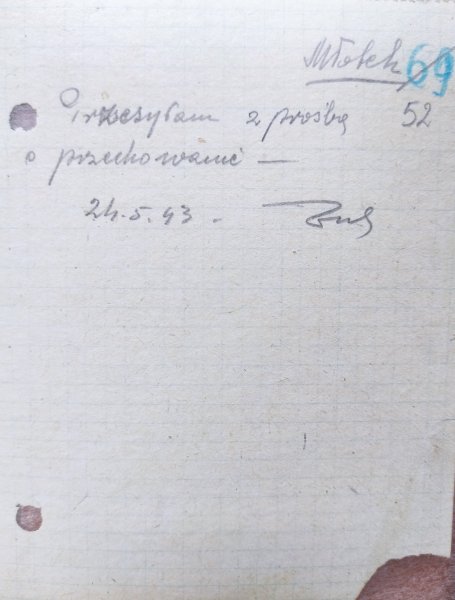 Młotek 69
Przesyłam z prośbą 52
o przechowanie —
24.5.43.